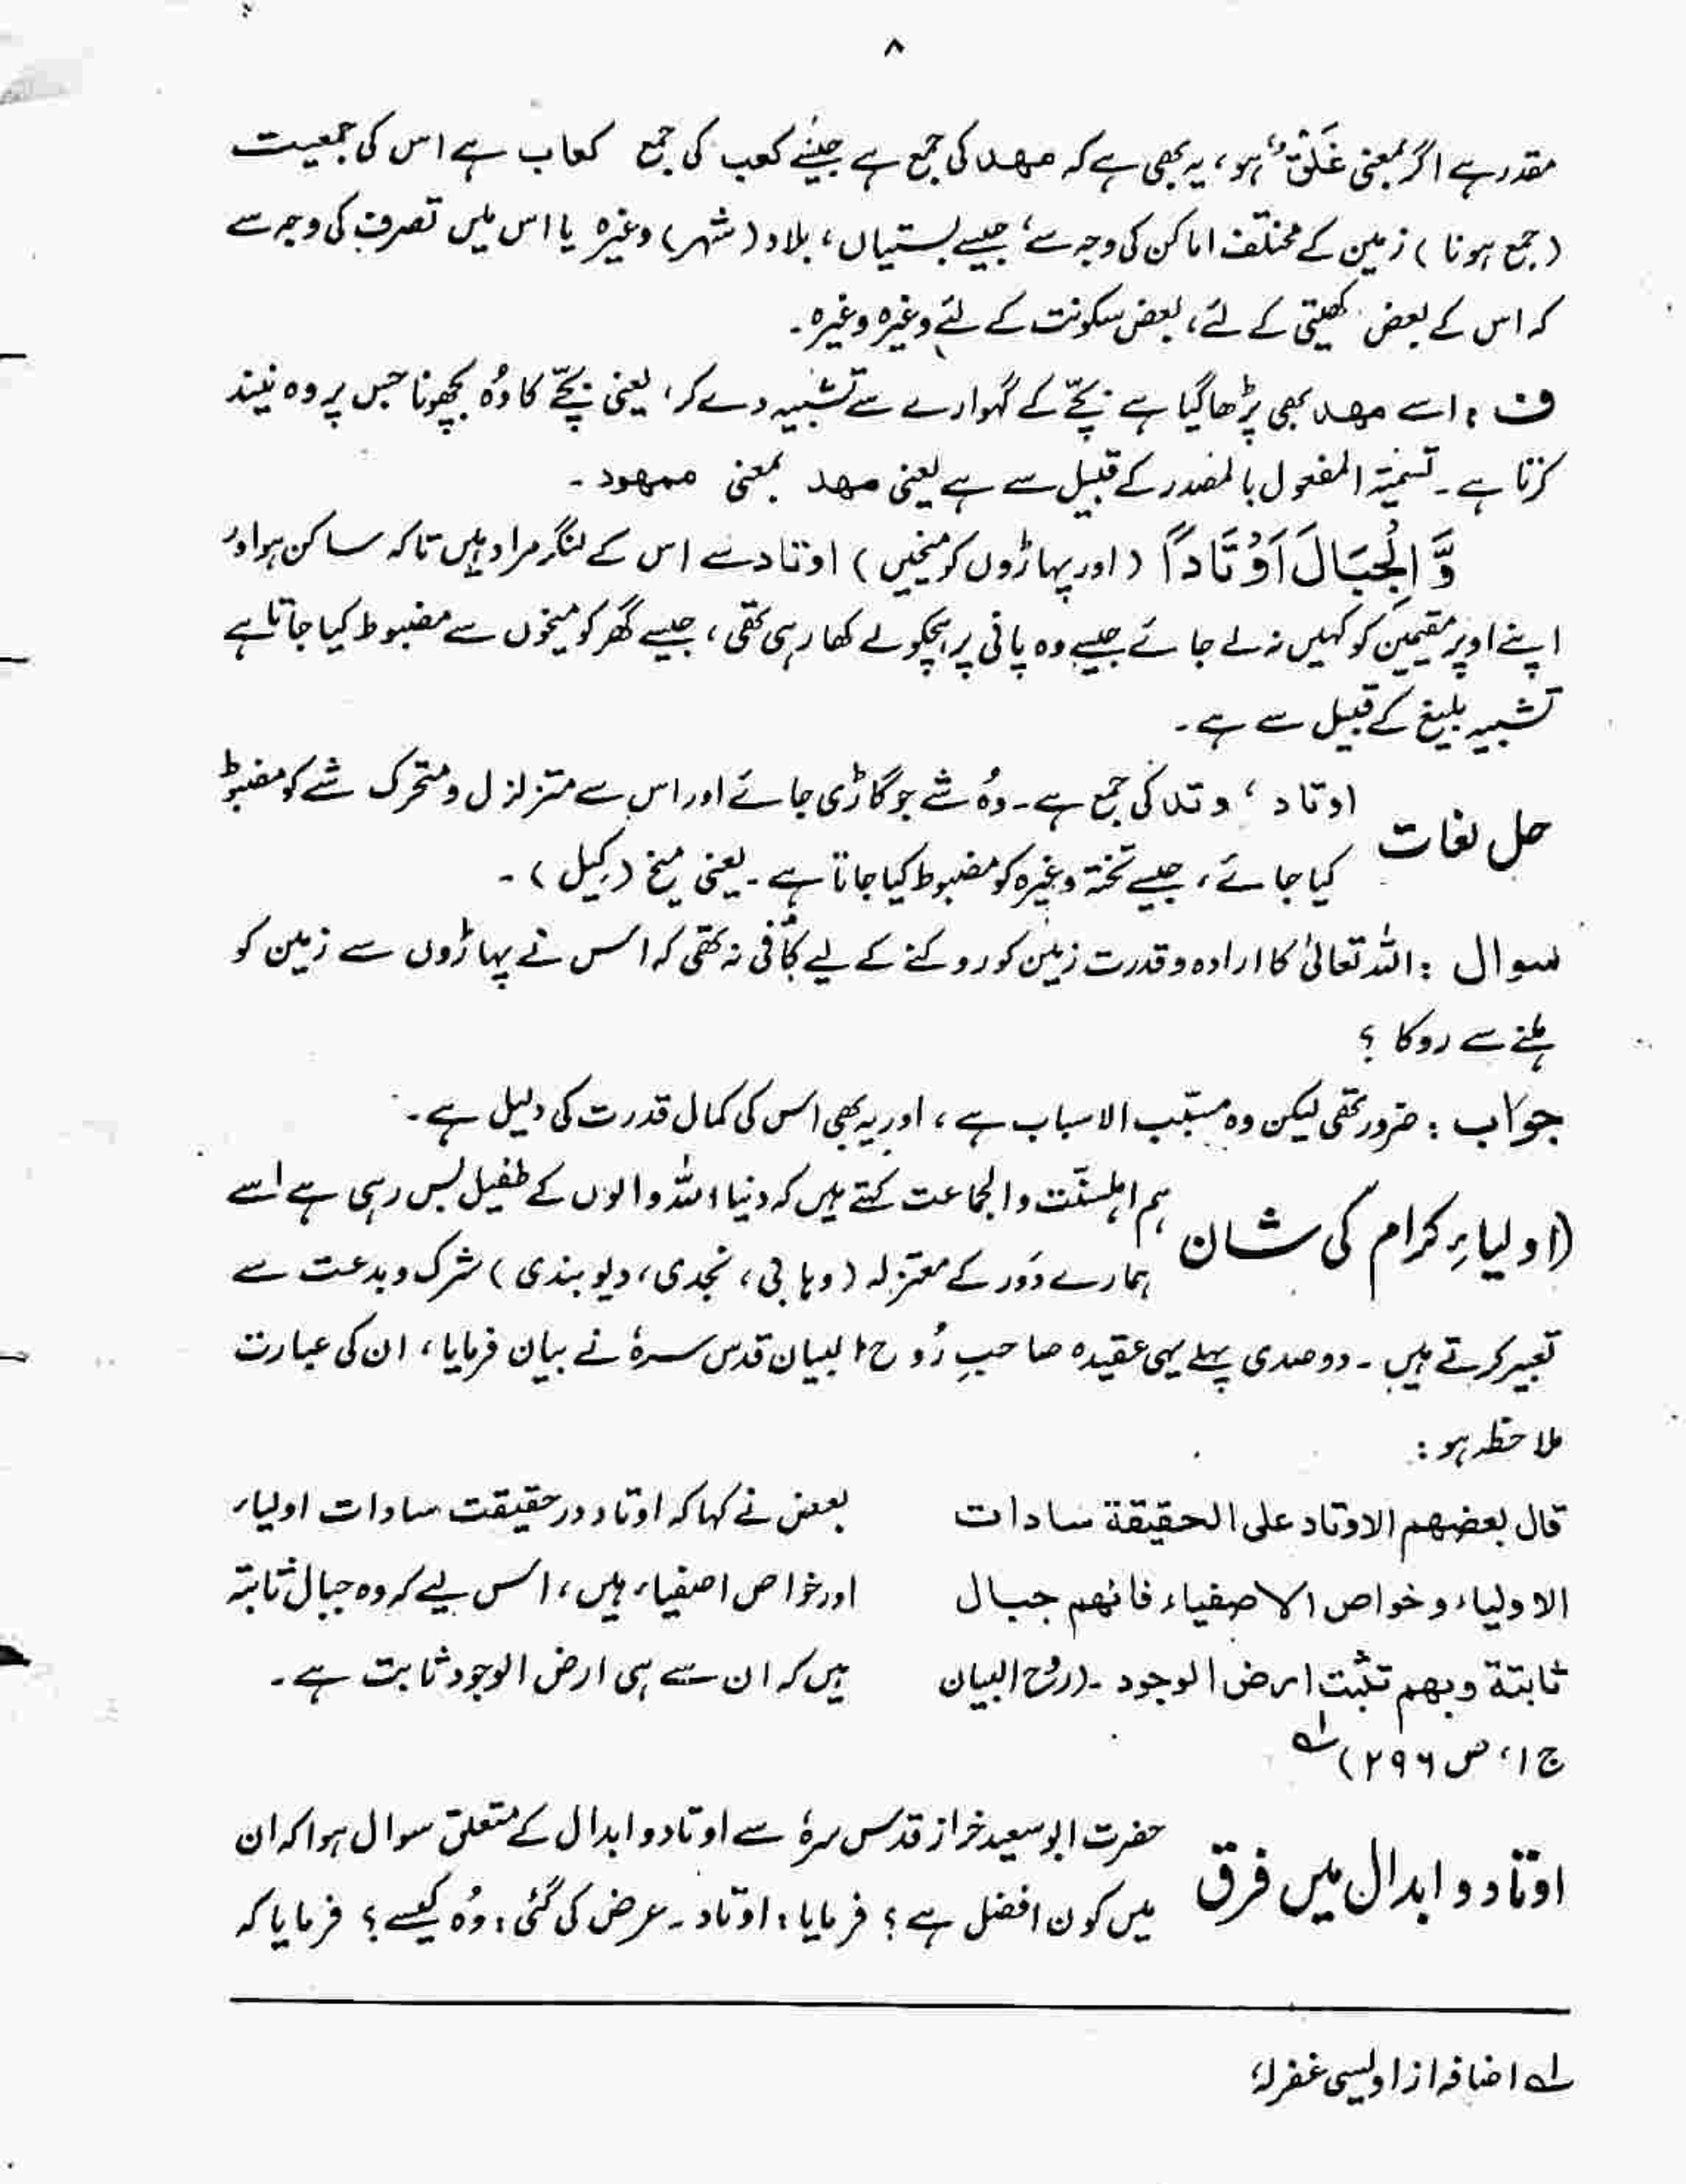 ۸
مقدر ہے اگر بمعنی خَلَقَ ہو، یہ بھی ہے کہ مهد کی جمع ہے جیسے کعب کی جمع کعاب ہے اس کی جمعیت
(جمع ہونا) زمین کے مختلف اماکن کی وجہ سے، جیسے بستیاں، بلاد (شہر) وغیرہ یا اس میں تصرف کی وجہ سے
کہ اس کے بعض کھیتی کے لئے، بعض سکونت کے لئے وغیرہ وغیرہ۔
ف : اسے مهد بھی پڑھا گیا ہے بچّے کے گہوارے سے تشبیہ دے کر، یعنی بچّے کا وُہ بچھونا جس پر وہ نیند
کرتا ہے۔ تسمیۃ المفعول بالمصدر کے قبیل سے ہے یعنی مهد بمعنی ممهود۔
وَّ الْجِبَالَ اَوْتَادًا (اور پہاڑوں کو میخیں) اوتاد سے اس کے لنگر مراد ہیں تاکہ ساکن ہو اور
اپنے اوپر مقیمین کو کہیں نہ لے جائے جیسے وہ پانی پر ہچکولے کھا رہی تھی، جیسے گھر کو میخوں سے مضبوط کیا جاتا ہے
تشبیہ بلیغ کے قبیل سے ہے۔
حل لغات اوتاد، وتد کی جمع ہے۔ وُہ شے جو گاڑی جائے اور اس سے متزلزل و متحرک شے کو مضبوط
کیا جائے، جیسے تختہ وغیرہ کو مضبوط کیا جاتا ہے۔ یعنی میخ (کِیل)۔
سوال : اللہ تعالیٰ کا ارادہ و قدرت زمین کو روکنے کے لیے کافی نہ تھی کہ اس نے پہاڑوں سے زمین کو
ہلنے سے روکا ؟
جواب : ضرور تھی لیکن وہ مسبّب الاسباب ہے، اور یہ بھی اس کی کمال قدرت کی دلیل ہے۔
(اولیاءِ کرام کی شان ہم اہلسنّت والجماعت کہتے ہیں کہ دنیا اللہ والوں کے طفیل بس رہی ہے اسے
ہمارے دَور کے معتزلہ (وہابی، نجدی، دیوبندی) شرک و بدعت سے
تعبیر کرتے ہیں۔ دو صدی پہلے یہی عقیدہ صاحبِ رُوح البیان قدس سرہٗ نے بیان فرمایا، ان کی عبارت
ملاحظہ ہو :
قال بعضهم الاوتاد على الحقيقة سادات
الاولياء وخواص الاصفياء فانهم جبال
ثابتة وبهم تثبت ارض الوجود۔ (روح البیان
ج ۱، ص ۲۹۶) لہ
بعض نے کہا کہ اوتاد در حقیقت سادات اولیاء
اور خواص اصفیاء ہیں، اس لیے کہ وہ جبال ثابتہ
ہیں کہ ان سے ہی ارض الوجود ثابت ہے۔
اوتاد و ابدال میں فرق حضرت ابوسعید خراز قدس سرہٗ سے اوتاد و ابدال کے متعلق سوال ہوا کہ ان
میں کون افضل ہے ؟ فرمایا : اوتاد۔ عرض کی گئی : وُہ کیسے ؟ فرمایا کہ
لہ اضافہ از اویسی غفرلہٗ